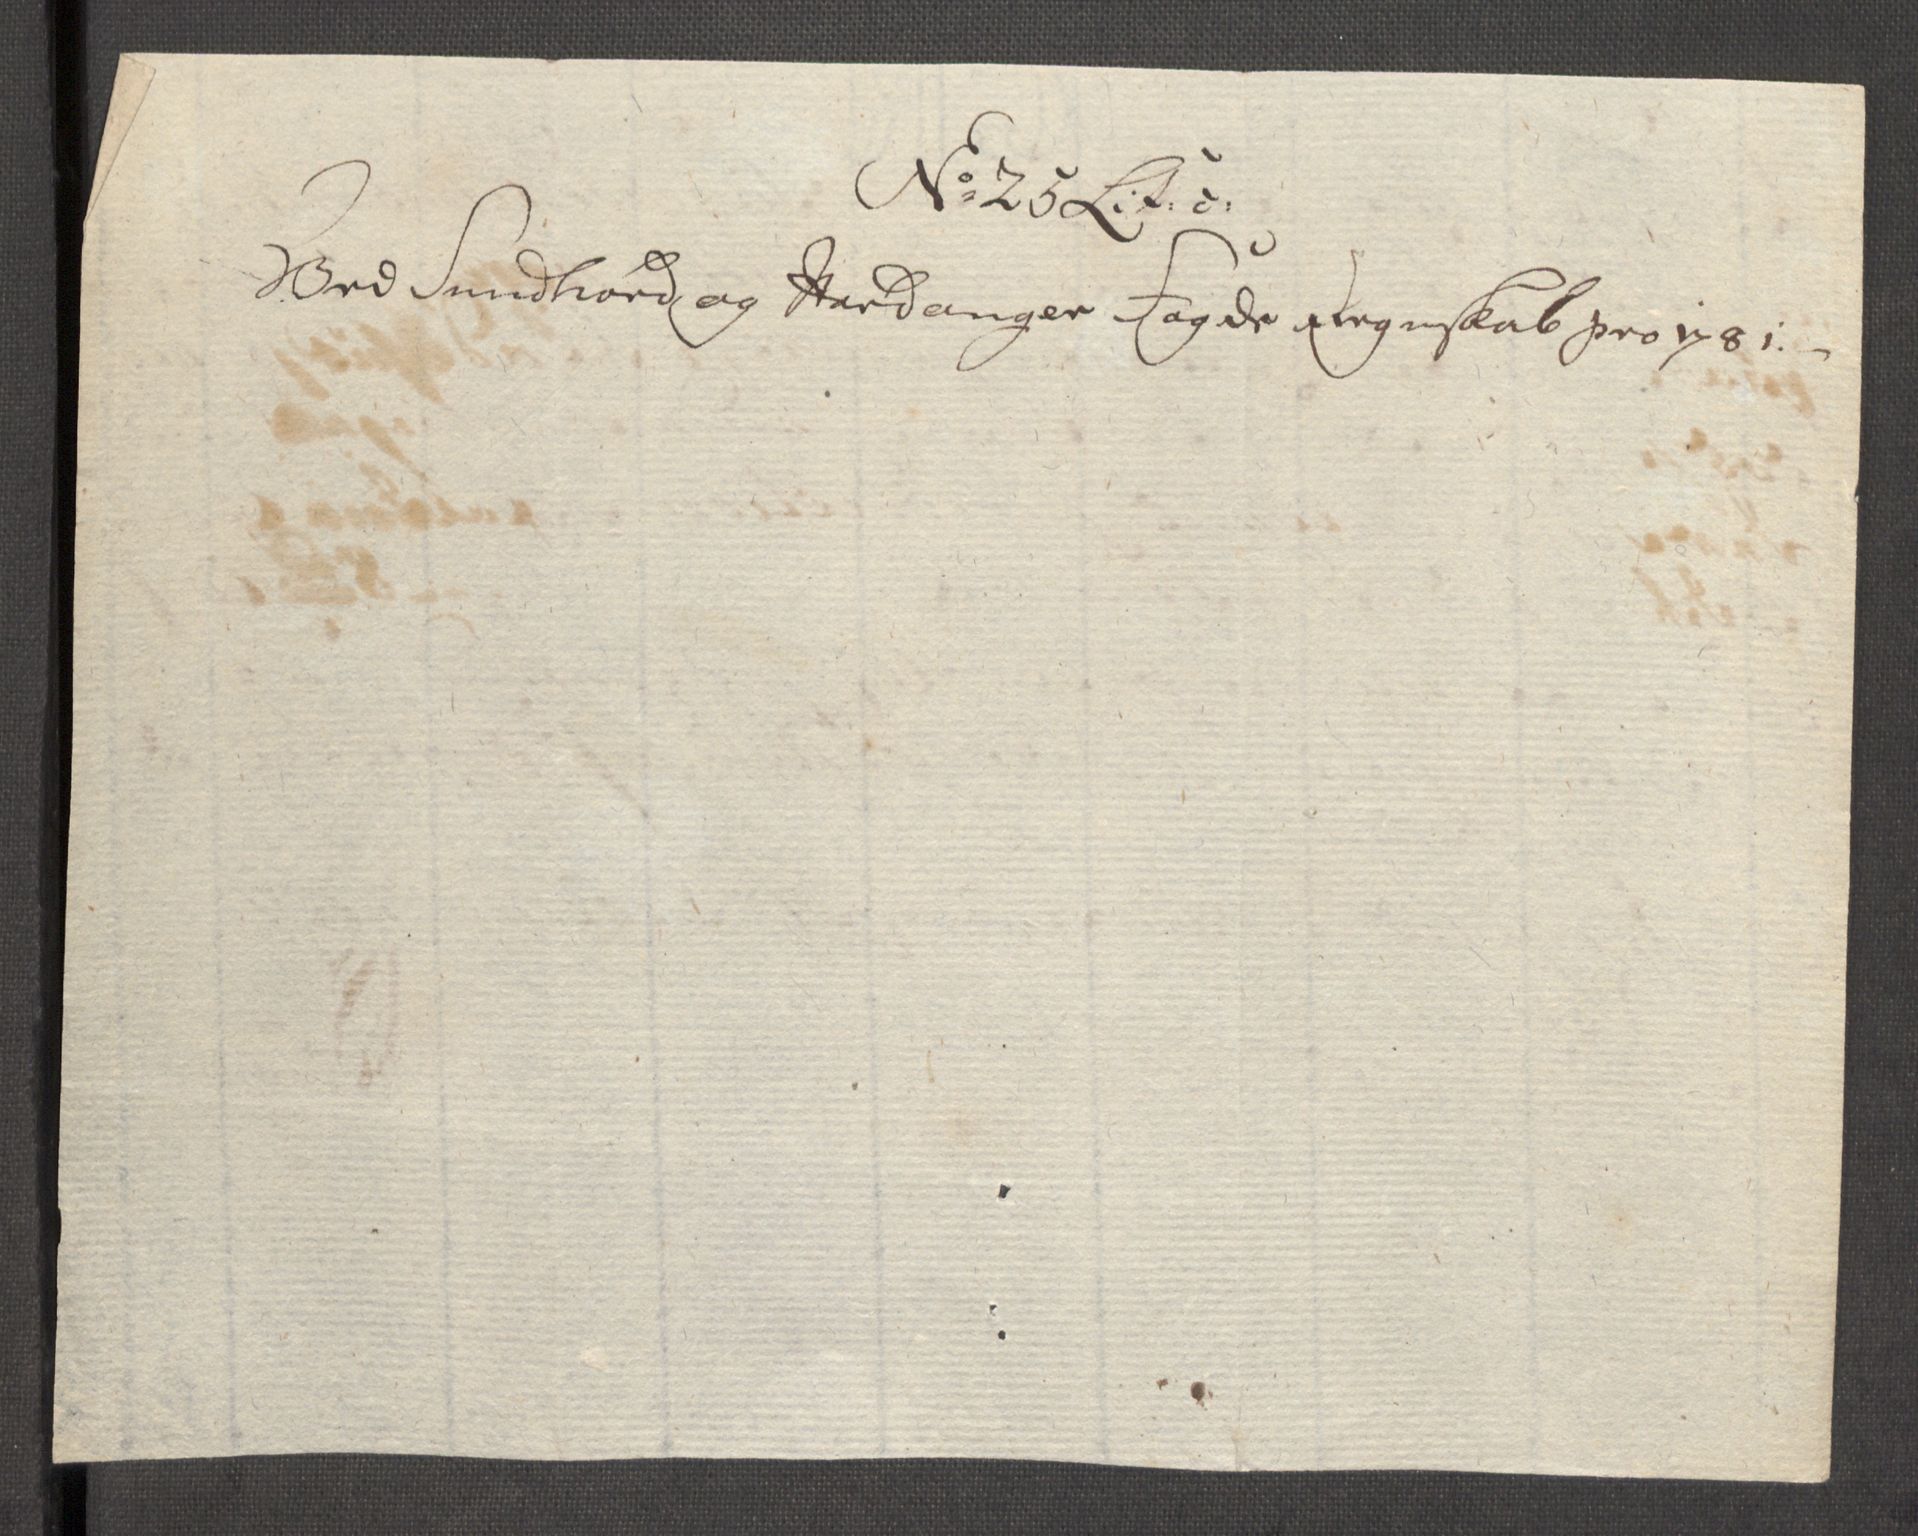 No: 25 Lit: c:
Ved Sundhord og Hardanger Fogde Regnskab pro 1781.